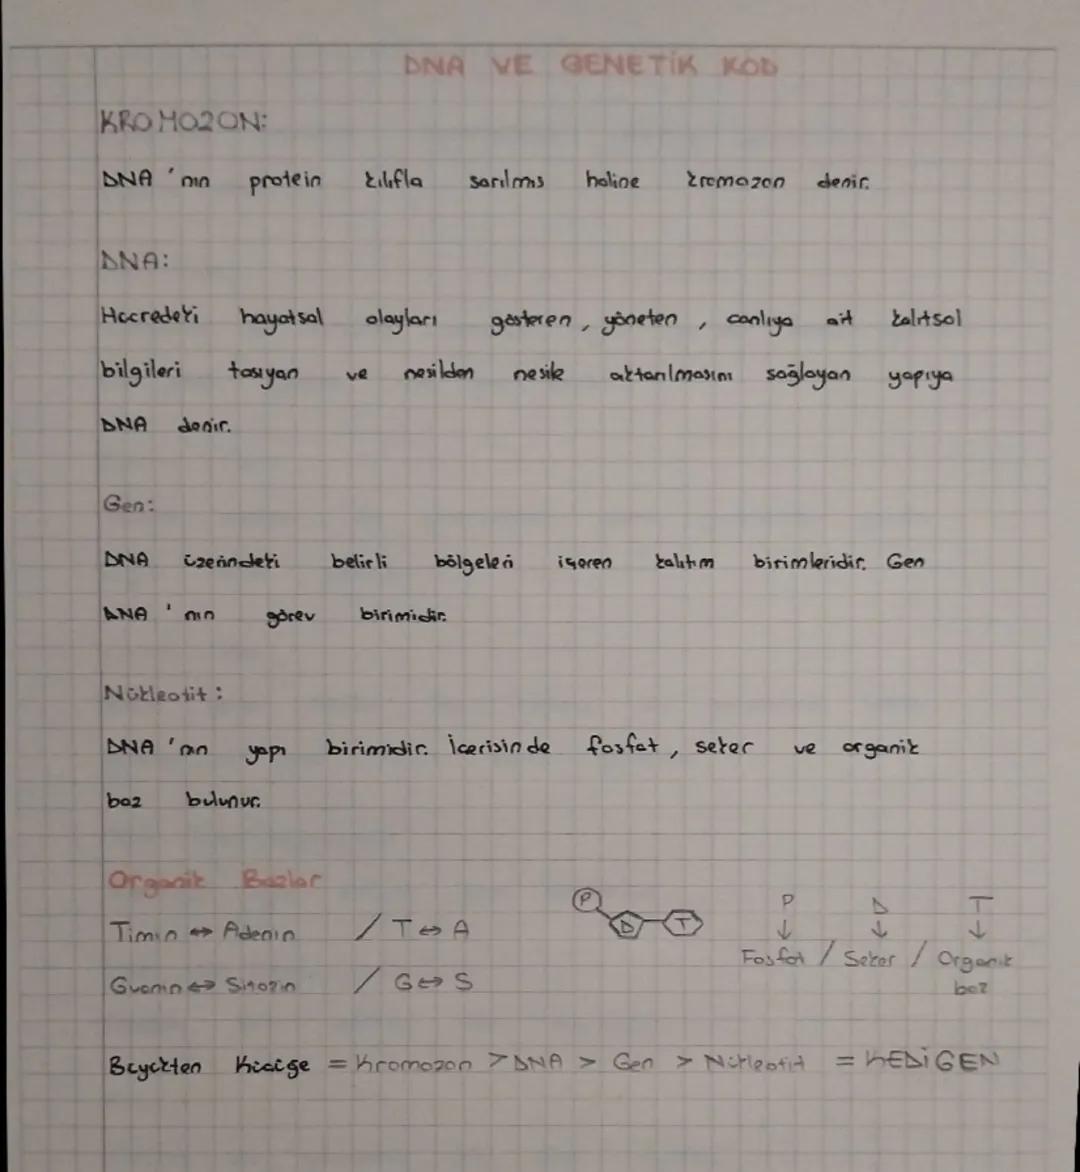 DNA VE GENETİK KOD
KROMOZON:
DNA 'nın protein kılıfla sarılmış haline kromozon denir.
DNA:
Hücredeki hayatsal olayları gösteren, yöneten, canlıya ait kalıtsal
bilgileri taşıyan ve nesilden nesile aktarılmasını sağlayan yapıya
DNA denir.
Gen:
DNA üzerindeki belirli bölgeleri içeren kalıtım birimleridir. Gen
DNA 'nın görev birimidir.
Nükleotit:
DNA 'nın yapı birimidir. İçerisinde fosfat, şeker ve organik
baz bulunur.
Organik Bazlar
Timin ↔ Adenin / T ↔ A
Guanin ↔ Sitozin / G ↔ S
P D T
P D T
↓ ↓ ↓
Fosfat / Şeker / Organik
baz
Büyükten Küçüğe = Kromozon > DNA > Gen > Nükleotit = KEDİGEN